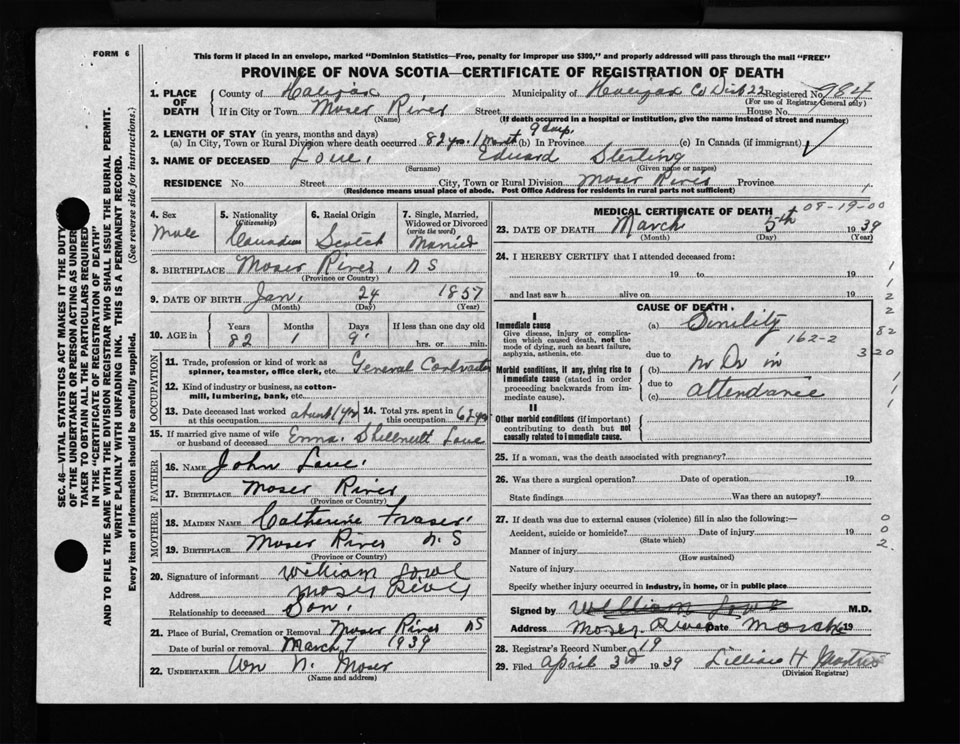 FORM 6
This form if placed in an envelope, marked "Dominion Statistics—Free, penalty for improper use $300," and properly addressed will pass through the mail "FREE"
PROVINCE OF NOVA SCOTIA—CERTIFICATE OF REGISTRATION OF DEATH
SEC. 46—VITAL STATISTICS ACT MAKES IT THE DUTY
OF THE UNDERTAKER OR PERSON ACTING AS UNDER-
TAKER TO OBTAIN ALL THE PARTICULARS REQUIRED
IN THE "CERTIFICATE OF REGISTRATION OF DEATH"
AND TO FILE THE SAME WITH THE DIVISION REGISTRAR WHO SHALL ISSUE THE BURIAL PERMIT.
WRITE PLAINLY WITH UNFADING INK. THIS IS A PERMANENT RECORD.
Every item of information should be carefully supplied. (See reverse side for instructions.)
1. PLACE OF DEATH County of Halifax Municipality of Halifax Co Dist 22 Registered No. 984
(For use of Registrar-General only)
If in City or Town Moser River Street House No.
(Name) (If death occurred in a hospital or institution, give the name instead of street and number)
2. LENGTH OF STAY (in years, months and days)
(a) In City, Town or Rural Division where death occurred 82 yrs. 1 Month 9 days. (b) In Province (c) In Canada (if immigrant)
3. NAME OF DECEASED Lowe, Edward Sterling
(Surname) (Given name or names)
RESIDENCE No. Street City, Town or Rural Division Moser River Province
(Residence means usual place of abode. Post Office Address for residents in rural parts not sufficient) 1
4. Sex Male
5. Nationality (Citizenship) Canadian
6. Racial Origin Scotch
7. Single, Married, Widowed or Divorced (write the word) Married
8. BIRTHPLACE Moser River, N S
(Province or Country)
9. DATE OF BIRTH Jan. 24 1857
(Month) (Day) (Year)
10. AGE in Years 82 Months 1 Days 9 If less than one day old hrs. or min.
OCCUPATION
11. Trade, profession or kind of work as spinner, teamster, office clerk, etc. General Contractor
12. Kind of industry or business, as cotton-mill, lumbering, bank, etc.
13. Date deceased last worked at this occupation about 1 yr
14. Total yrs. spent in this occupation 62 yrs
15. If married give name of wife or husband of deceased Emma Lowe
FATHER
16. NAME John Lowe
17. BIRTHPLACE Moser River
(Province or Country)
MOTHER
18. MAIDEN NAME Catherine Fraser
19. BIRTHPLACE Moser River N. S
(Province or Country)
20. Signature of informant William Lowe
Address Moser River
Relationship to deceased Son.
21. Place of Burial, Cremation or Removal Moser River NS
Date of burial or removal March 7 1939
22. UNDERTAKER Wm N. Moser
(Name and address)
MEDICAL CERTIFICATE OF DEATH 08-19-00
23. DATE OF DEATH March 5th 1939
(Month) (Day) (Year)
24. I HEREBY CERTIFY that I attended deceased from:
19 to 19
and last saw h alive on 19
CAUSE OF DEATH.
I
Immediate cause
Give disease, injury or complication which caused death, not the mode of dying, such as heart failure, asphyxia, asthenia, etc.
(a) Senility
162-2
due to
Morbid conditions, if any, giving rise to immediate cause (stated in order proceeding backwards from immediate cause).
(b) no Dr in
due to
(c) attendance
II
Other morbid conditions (if important) contributing to death but not causally related to immediate cause.
1
1
2
2
82
320
1
1
1
25. If a woman, was the death associated with pregnancy?
26. Was there a surgical operation? Date of operation 19
State findings Was there an autopsy?
27. If death was due to external causes (violence) fill in also the following:—
Accident, suicide or homicide? Date of injury 19
(State which)
Manner of injury
(How sustained)
Nature of injury
Specify whether injury occurred in industry, in home, or in public place
0
0
2
Signed by William Lowe M.D.
Address Moser River Date March 19
28. Registrar's Record Number 19
29. Filed April 3rd 1939 Lillian H
(Division Registrar)